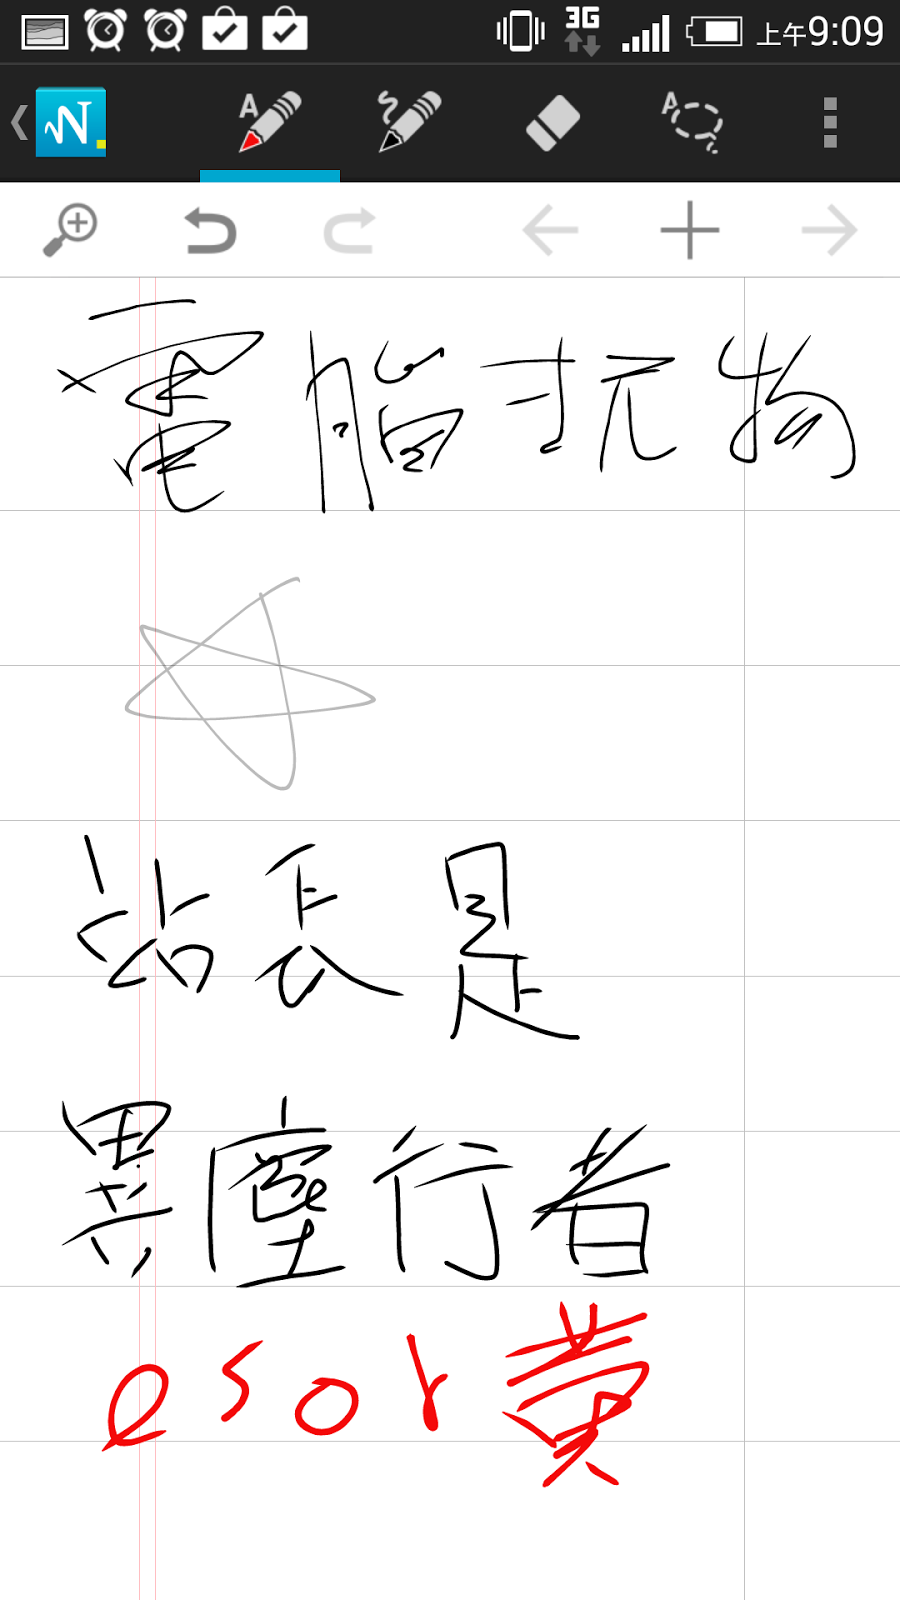 3G 上午9:09
電腦玩物
站長是
異塵行者
esor黄